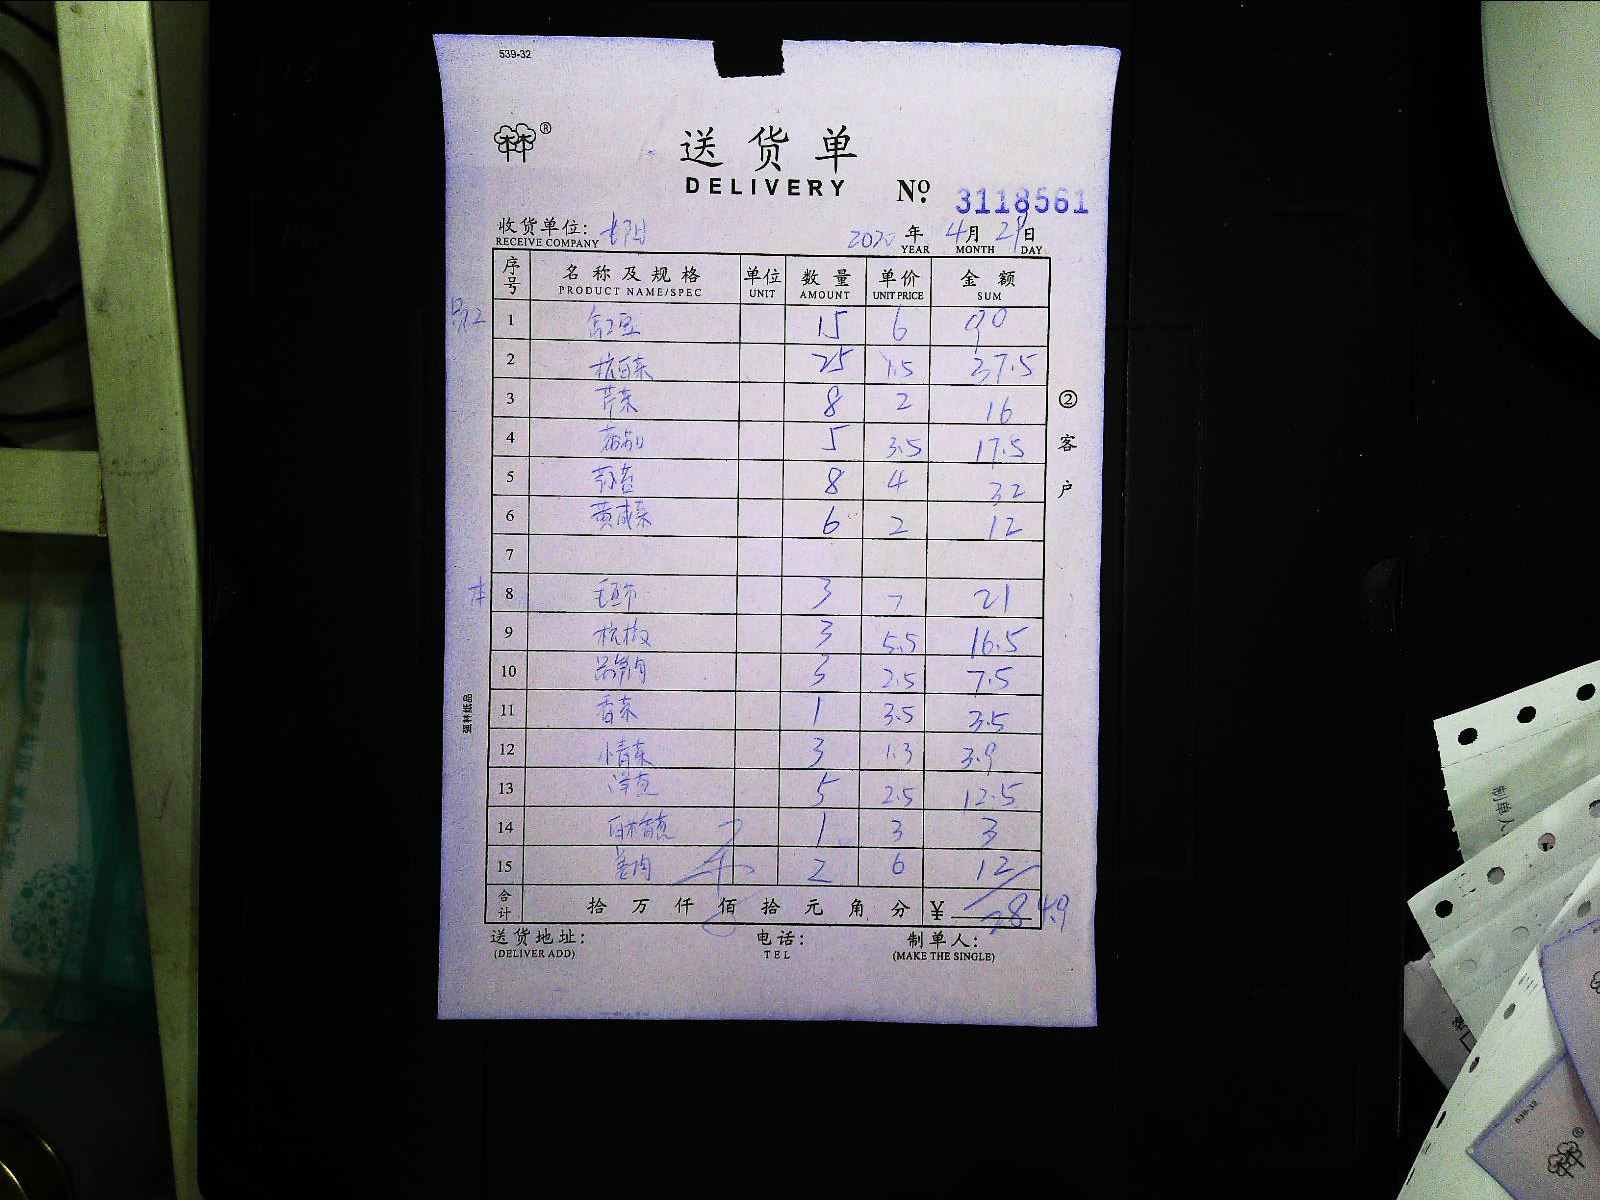 539-32
林®
送货单
DELIVERY № 3118561
收货单位: 2020 年 4月 29日
RECEIVE COMPANY YEAR MONTH DAY
序号 名称及规格 单位 数量 单价 金额
PRODUCT NAME/SPEC UNIT AMOUNT UNIT PRICE SUM
1 豇豆 15 6 90
2 杭白菜 25 1.5 37.5
3 芹菜 8 2 16
4 5 3.5 17.5
5 8 4 32
6 黄咸菜 6 2 12
7
8 毛豆节 3 7 21
9 杭椒 3 5.5 16.5
10 3 2.5 7.5
11 香菜 1 3.5 3.5
12 小青菜 3 1.3 3.9
13 洋葱 5 2.5 12.5
14 1 3 3
15 姜肉 2 6 12
合计 拾万仟佰拾元角分 ¥ 284.9
送货地址: 电话: 制单人:
(DELIVER ADD) TEL (MAKE THE SINGLE)
②客户
强林纸品
制单人
539-32